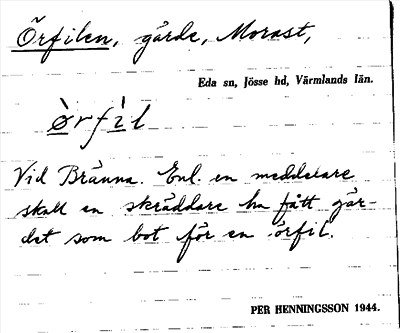 Örfilen, gärde, Morast,
Eda sn, Jösse hd, Värmlands län.
ö̀rfìl
Vid Bränna. Enl. en meddelare
skall en skräddare ha fått gär-
det som bot för en örfil.
PER HENNINGSSON 1944.